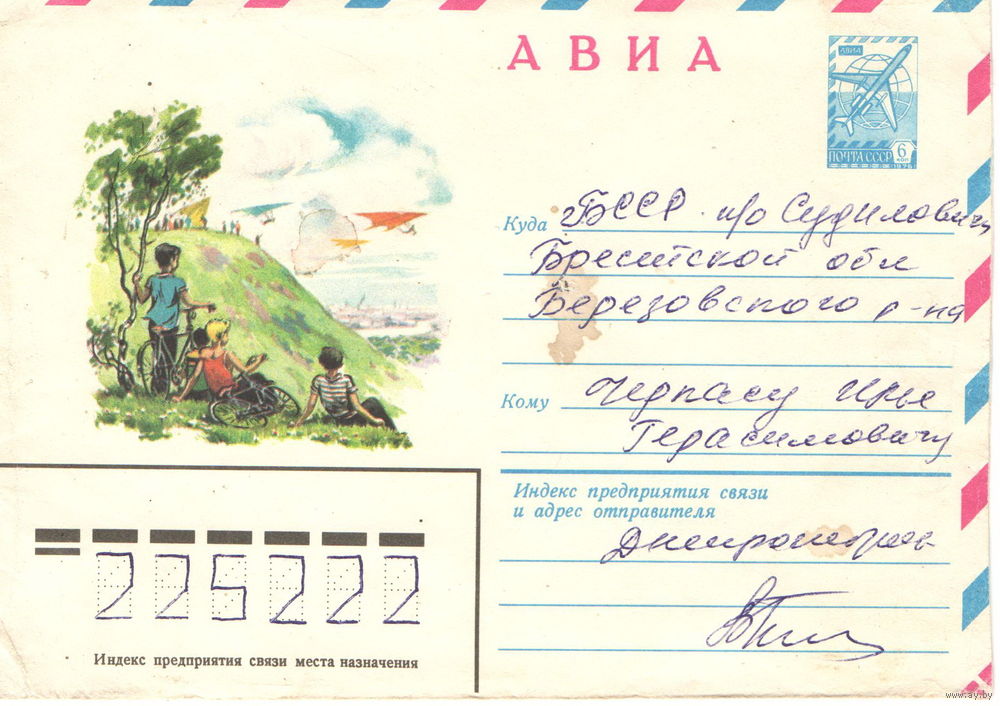 АВИА
АВИА
ПОЧТА СССР 6 КОП
1978
Куда БССР п/о Судиловичи
Брестской обл
Березовского р-на
Кому Черпасу Илье
Герасимовичу
Индекс предприятия связи
и адрес отправителя
Днепропетровск
225222
Индекс предприятия связи места назначения
www.ay.by